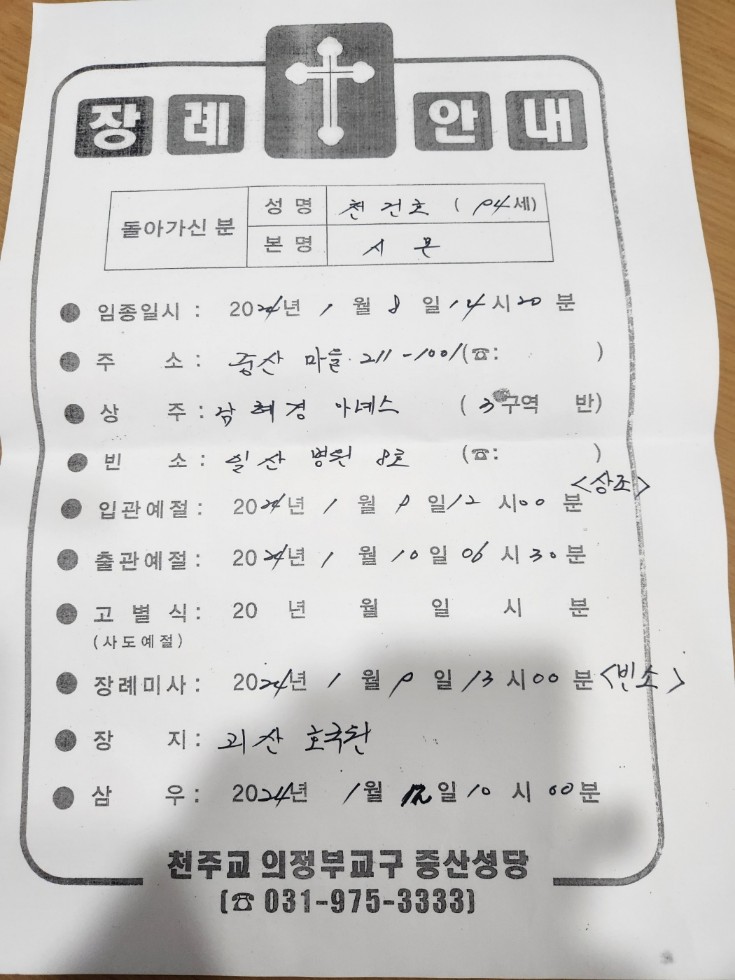 장례 안내
돌아가신 분
성 명 천 건 호 ( 94세)
본 명 시 몬
● 임종일시 : 2024년 1월 8일 14시 20분
● 주 소 : 중산 마을 211-1001(☎: )
● 상 주 : 남 혜 경 아녜스 ( 3구역 반)
● 빈 소 : 일산 병원 8호 (☎: )
<상조>
● 입관예절 : 2024년 1월 9일 12시 00분
● 출관예절 : 2024년 1월 10일 06시 30분
● 고 별 식 : 20 년 월 일 시 분
(사도예절)
● 장례미사 : 2024년 1월 9일 13시 00분 <빈소>
● 장 지 : 괴산 호국원
● 삼 우 : 2024년 1월 12일 10시 00분
천주교 의정부교구 중산성당
(☎ 031-975-3333)